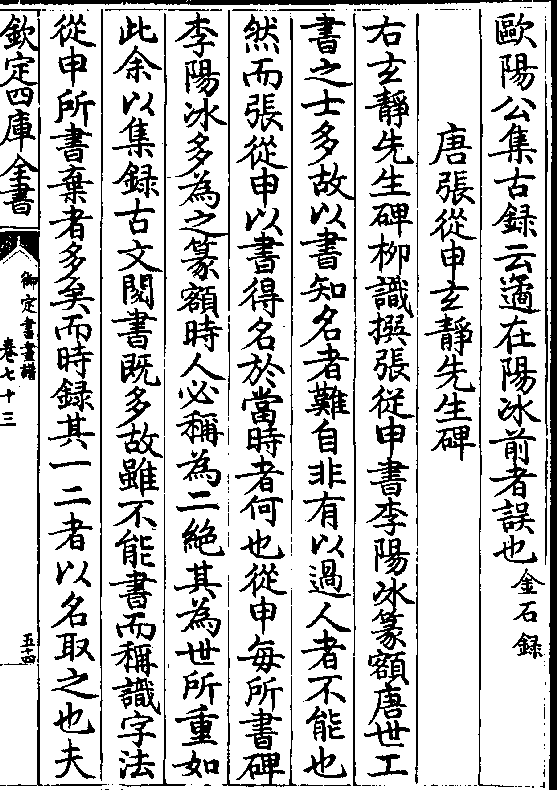 歐陽公集古録云適在陽冰前者誤也金石録
唐張從申玄靜先生碑
右玄靜先生碑柳識撰張從申書李陽冰篆額唐世工
書之士多故以書知名者難自非有以過人者不能也
然而張從申以書得名於當時者何也從申每所書碑
李陽冰多為之篆額時人必稱為二絶其為世所重如
此余以集録古文閲書既多故雖不能書而稱識字法
從申所書棄者多矣而時録其一二者以名取之也夫
欽定四庫全書
御定書畫譜
卷七十三
五十四